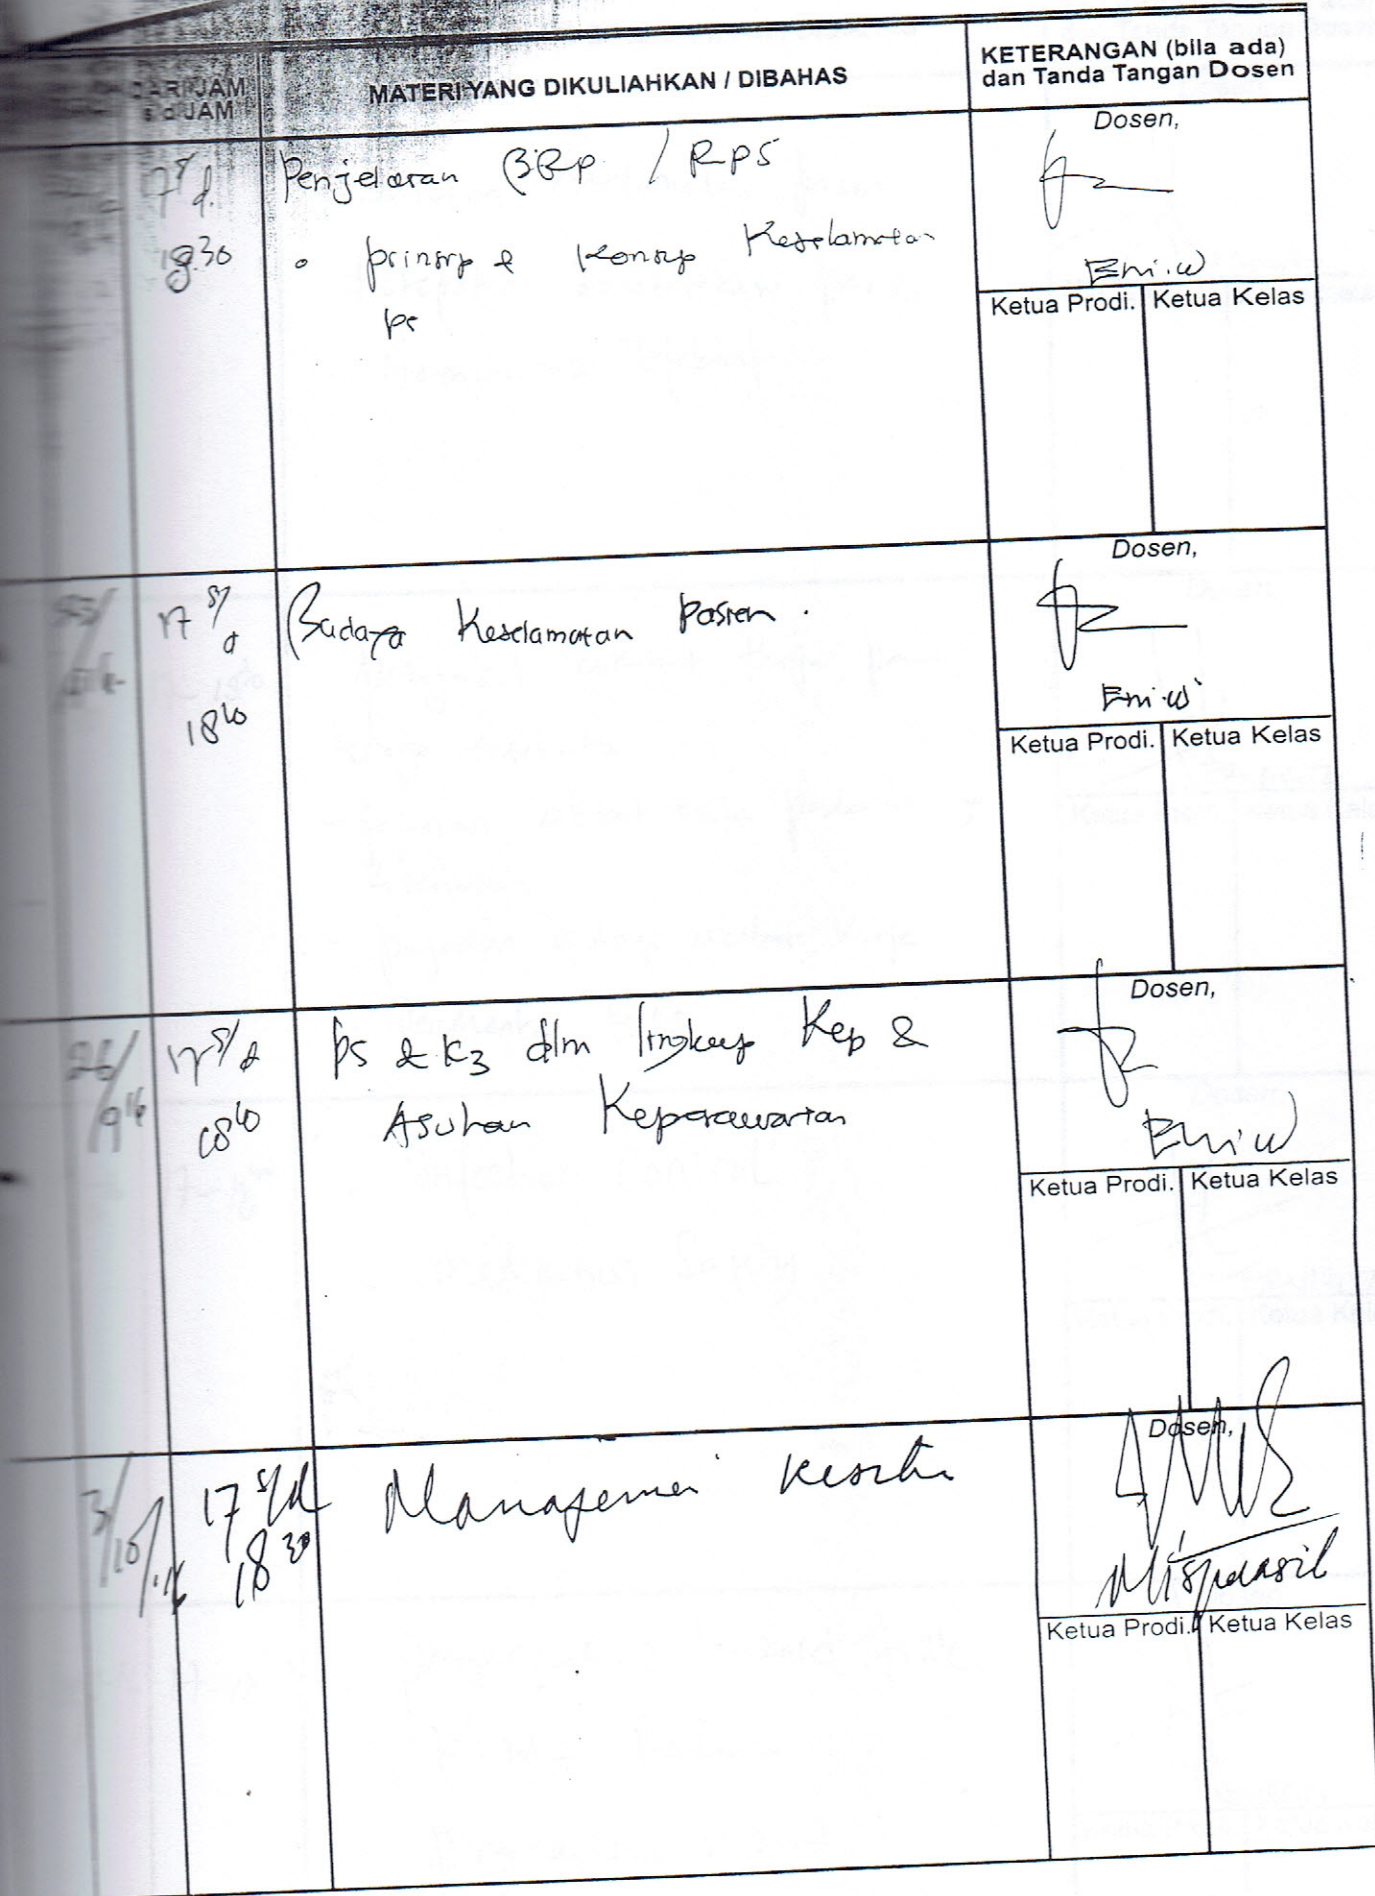 DARI JAM
s.d JAM
MATERI YANG DIKULIAHKAN / DIBAHAS
KETERANGAN (bila ada)
dan Tanda Tangan Dosen
17 s/d.
18.30
Penjelasan / RPS
• prinsip & Konsep Keselamatan
ps
Dosen,
Eni.w
Ketua Prodi. Ketua Kelas
17 s/d
Budaya Keselamatan pasien.
Dosen,
Eni.w
Ketua Prodi. Ketua Kelas
26/
9 16
17 s/d
ps & K3 dlm lingkup Kep &
Asuhan Keperawatan
Dosen,
Eni w
Ketua Prodi. Ketua Kelas
3/10/16
17 s/d
18 30
Dosen,
Ketua Prodi. Ketua Kelas